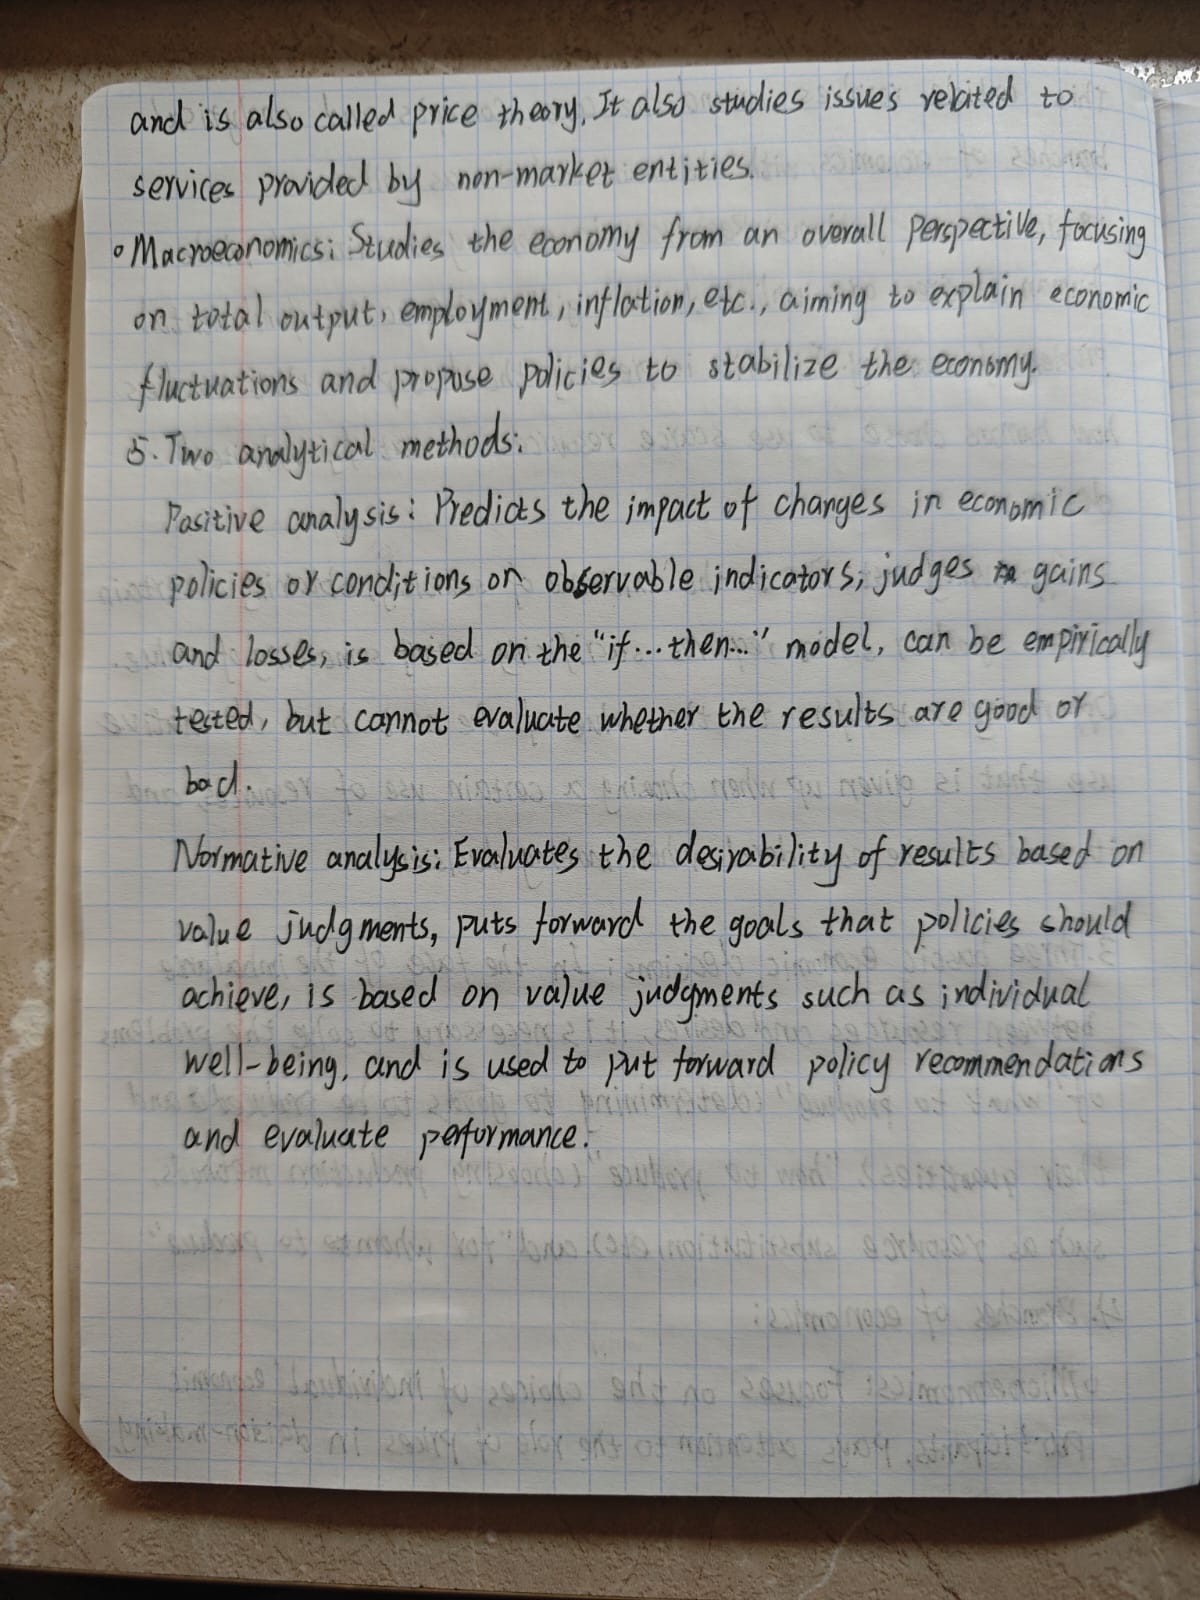 and is also called price theory. It also studies issues related to
services provided by non-market entities.
◦ Macroeconomics: Studies the economy from an overall perspective, focusing
on total output, employment, inflation, etc., aiming to explain economic
fluctuations and propose policies to stabilize the economy.
5. Two analytical methods:
Positive analysis: Predicts the impact of changes in economic
policies or conditions on observable indicators, judges gains
and losses, is based on the "if...then..." model, can be empirically
tested, but cannot evaluate whether the results are good or
bad.
Normative analysis: Evaluates the desirability of results based on
value judgments, puts forward the goals that policies should
achieve, is based on value judgments such as individual
well-being, and is used to put forward policy recommendations
and evaluate performance.